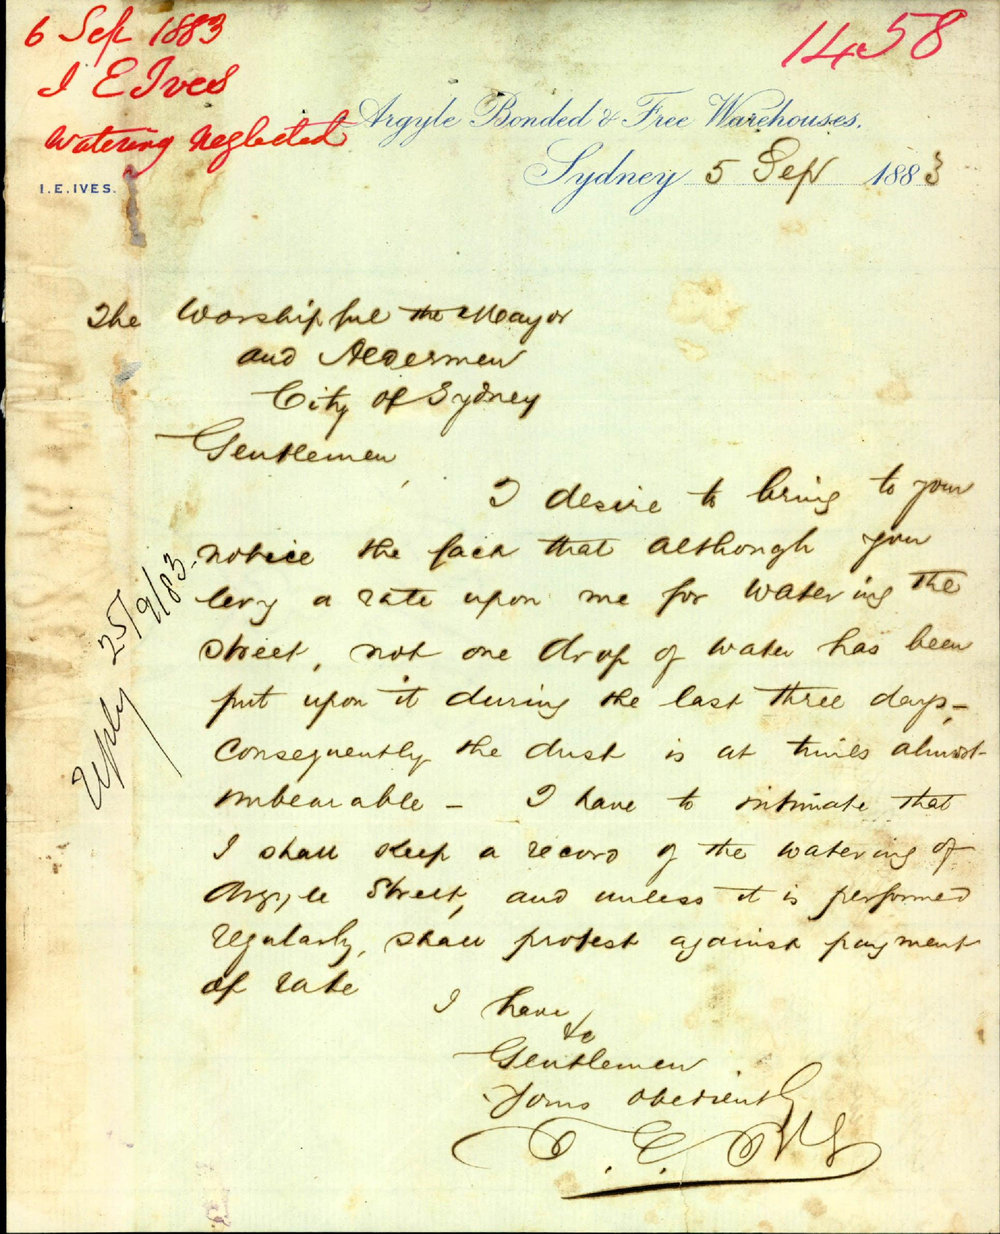 6 Sep 1883
1458
I E Ives
Watering Neglected
Argyle Bonded & Free Warehouses.
I.E.IVES.
Sydney 5 Sep 1883
The Worshipful the Mayor
and Aldermen
City of Sydney
Gentlemen
I desire to bring to your
notice the fact that although you
levy a rate upon me for watering the
street, not one drop of water has been
put upon it during the last three days –
Consequently the dust is at times almost
unbearable – I have to intimate that
I shall keep a record of the watering of
Argyle Street, and unless it is performed
regularly, shall protest against payment
of rate
I have
&c
Gentlemen
Yours obediently
I. E. Ives
Reply 25/9/83